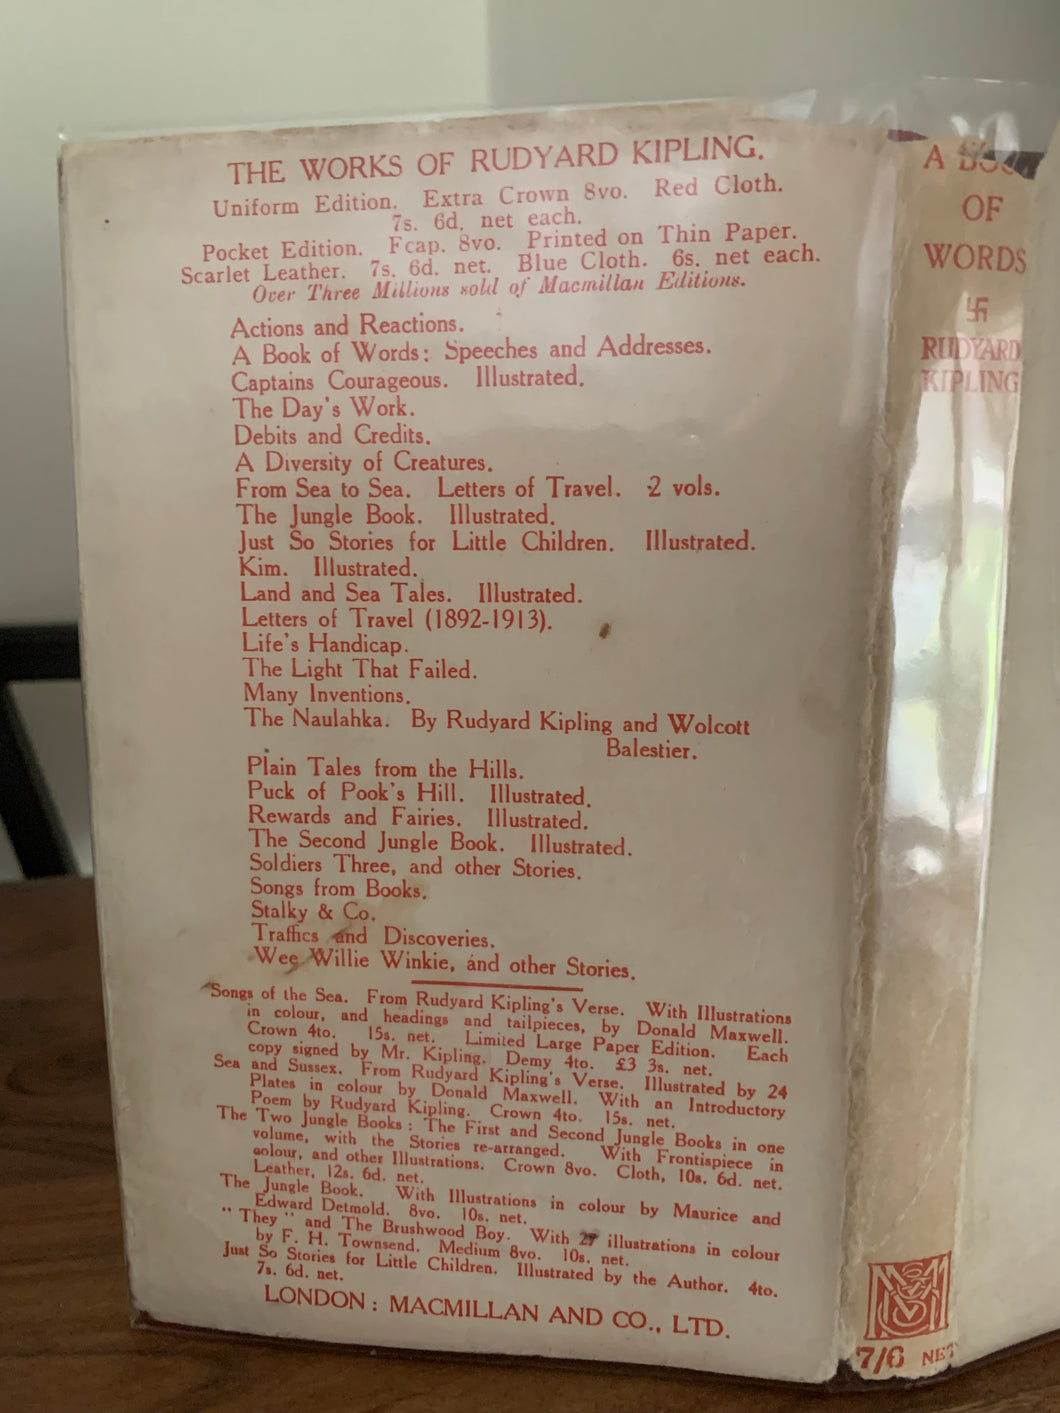 THE WORKS OF RUDYARD KIPLING.
Uniform Edition. Extra Crown 8vo. Red Cloth.
7s. 6d. net each.
Pocket Edition. Fcap. 8vo. Printed on Thin Paper.
Scarlet Leather. 7s. 6d. net. Blue Cloth. 6s. net each.
Over Three Millions sold of Macmillan Editions.
Actions and Reactions.
A Book of Words: Speeches and Addresses.
Captains Courageous. Illustrated.
The Day's Work.
Debits and Credits.
A Diversity of Creatures.
From Sea to Sea. Letters of Travel. 2 vols.
The Jungle Book. Illustrated.
Just So Stories for Little Children. Illustrated.
Kim. Illustrated.
Land and Sea Tales. Illustrated.
Letters of Travel (1892-1913).
Life's Handicap.
The Light That Failed.
Many Inventions.
The Naulahka. By Rudyard Kipling and Wolcott
Balestier.
Plain Tales from the Hills.
Puck of Pook's Hill. Illustrated.
Rewards and Fairies. Illustrated.
The Second Jungle Book. Illustrated.
Soldiers Three, and other Stories.
Songs from Books.
Stalky & Co.
Traffics and Discoveries.
Wee Willie Winkie, and other Stories.
Songs of the Sea. From Rudyard Kipling's Verse. With Illustrations
in colour, and headings and tailpieces, by Donald Maxwell.
Crown 4to. 15s. net. Limited Large Paper Edition. Each
copy signed by Mr. Kipling. Demy 4to. £3 3s. net.
Sea and Sussex. From Rudyard Kipling's Verse. Illustrated by 24
Plates in colour by Donald Maxwell. With an Introductory
Poem by Rudyard Kipling. Crown 4to. 15s. net.
The Two Jungle Books: The First and Second Jungle Books in one
volume, with the Stories re-arranged. With Frontispiece in
colour, and other Illustrations. Crown 8vo. Cloth, 10s. 6d. net.
Leather, 12s. 6d. net.
The Jungle Book. With Illustrations in colour by Maurice and
Edward Detmold. 8vo. 10s. net.
"They" and The Brushwood Boy. With 27 illustrations in colour
by F. H. Townsend. Medium 8vo. 10s. net.
Just So Stories for Little Children. Illustrated by the Author. 4to.
7s. 6d. net.
LONDON: MACMILLAN AND CO., LTD.
A
OF
WORDS
卐
RUDYARD
KIPLING
7/6 NET